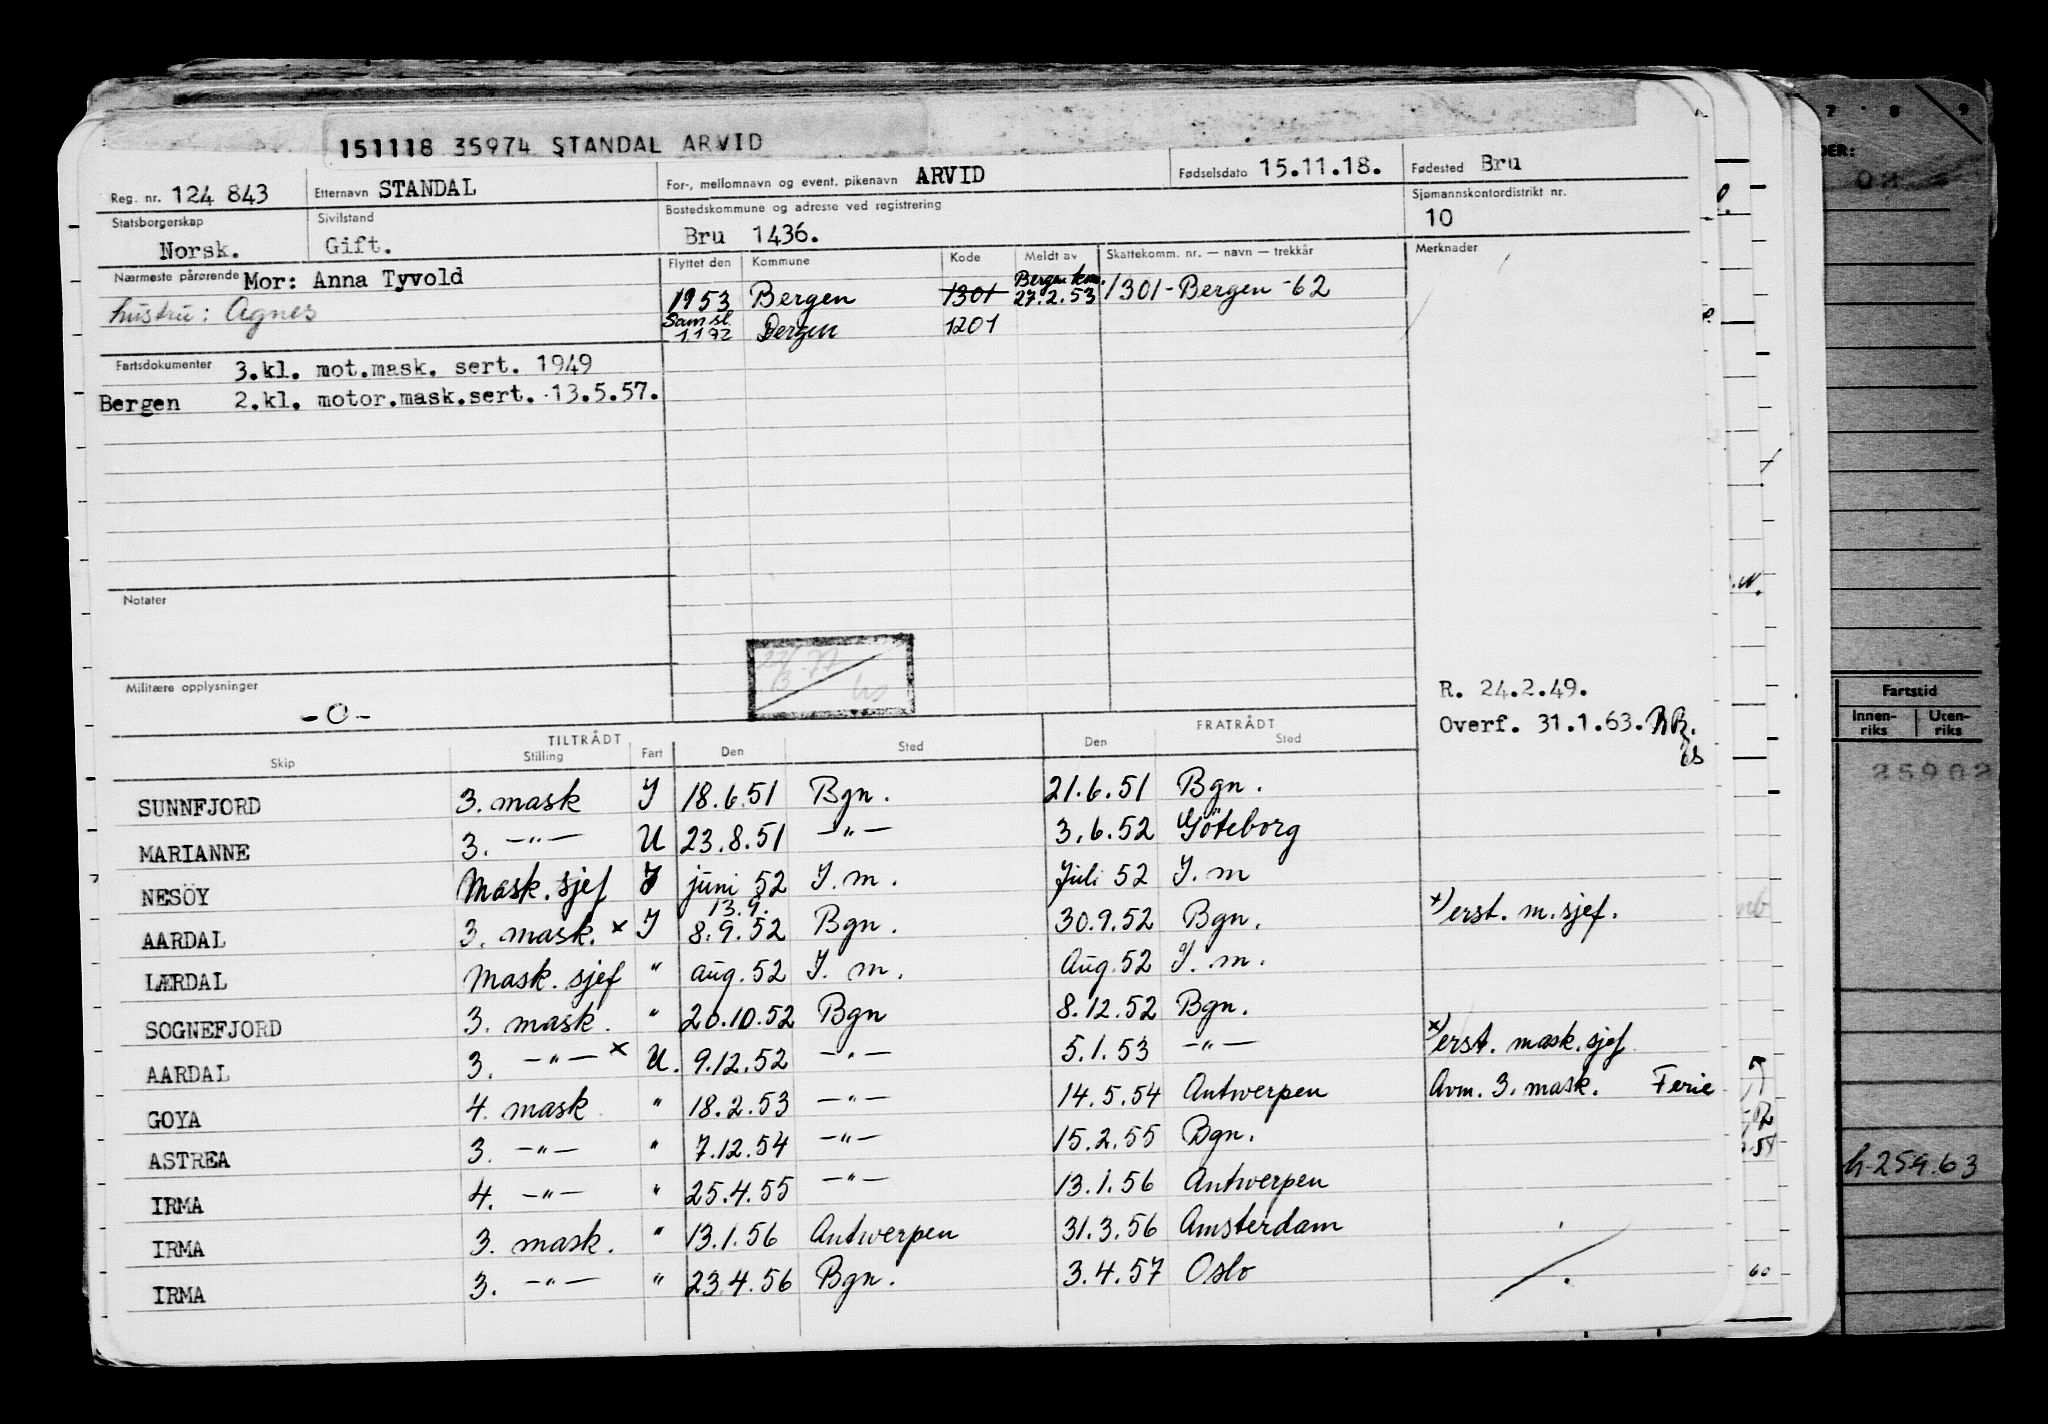 151118 35974 STANDAL ARVID
Reg. nr. 124 843 Etternavn STANDAL For-, mellomnavn og event. pikenavn ARVID Fødselsdato 15.11.18. Fødested Bru
Statsborgerskap Norsk. Sivilstand Gift. Bostedskommune og adresse ved registrering Bru 1436. Sjømannskontordistrikt nr. 10
Nærmeste pårørende Mor: Anna Tyvold
hustru: Agnes
Flyttet den Kommune Kode Meldt av Skattekomm. nr. — navn — trekkår Merknader
1953 Bergen 1301 Bergen kom. 27.2.53 1301-Bergen-62
Sam.sl. 1172 Bergen 1201
Fartsdokumenter 3.kl. mot.mask. sert. 1949
Bergen 2.kl. motor.mask.sert. 13.5.57.
Notater
Militære opplysninger
-O-
R. 24.2.49.
Overf. 31.1.63.
TILTRÅDT FRATRÅDT
Skip Stilling Fart Den Sted Den Sted
SUNNFJORD 3. mask I 18.6.51 Bgn. 21.6.51 Bgn.
MARIANNE 3. —"— U 23.8.51 —"— 3.6.52 Göteborg
NESÖY Mask. sjef I juni 52 I. m. Juli 52 I. m
AARDAL 3. mask. x I 13.9. 8.9.52 Bgn. 30.9.52 Bgn. x) erst. m. sjef.
LÆRDAL Mask. sjef " aug. 52 I. m. Aug. 52 I. m.
SOGNEFJORD 3. mask. " 20.10.52 Bgn 8.12.52 Bgn.
AARDAL 3. —"— x U. 9.12.52 —"— 5.1.53 —"— x) erst. mask. sjef
GOYA 4. mask " 18.2.53 —"— 14.5.54 Antwerpen Avm. 3. mask. Ferie
ASTREA 3. —"— " 7.12.54 —"— 15.2.55 Bgn.
IRMA 4. —"— " 25.4.55 —"— 13.1.56 Antwerpen
IRMA 3. mask. " 13.1.56 Antwerpen 31.3.56 Amsterdam
IRMA 3. —"— " 23.4.56 Bgn. 3.4.57 Oslo
7 8 9
Fartstid
Innen-riks Uten-riks
25902
60